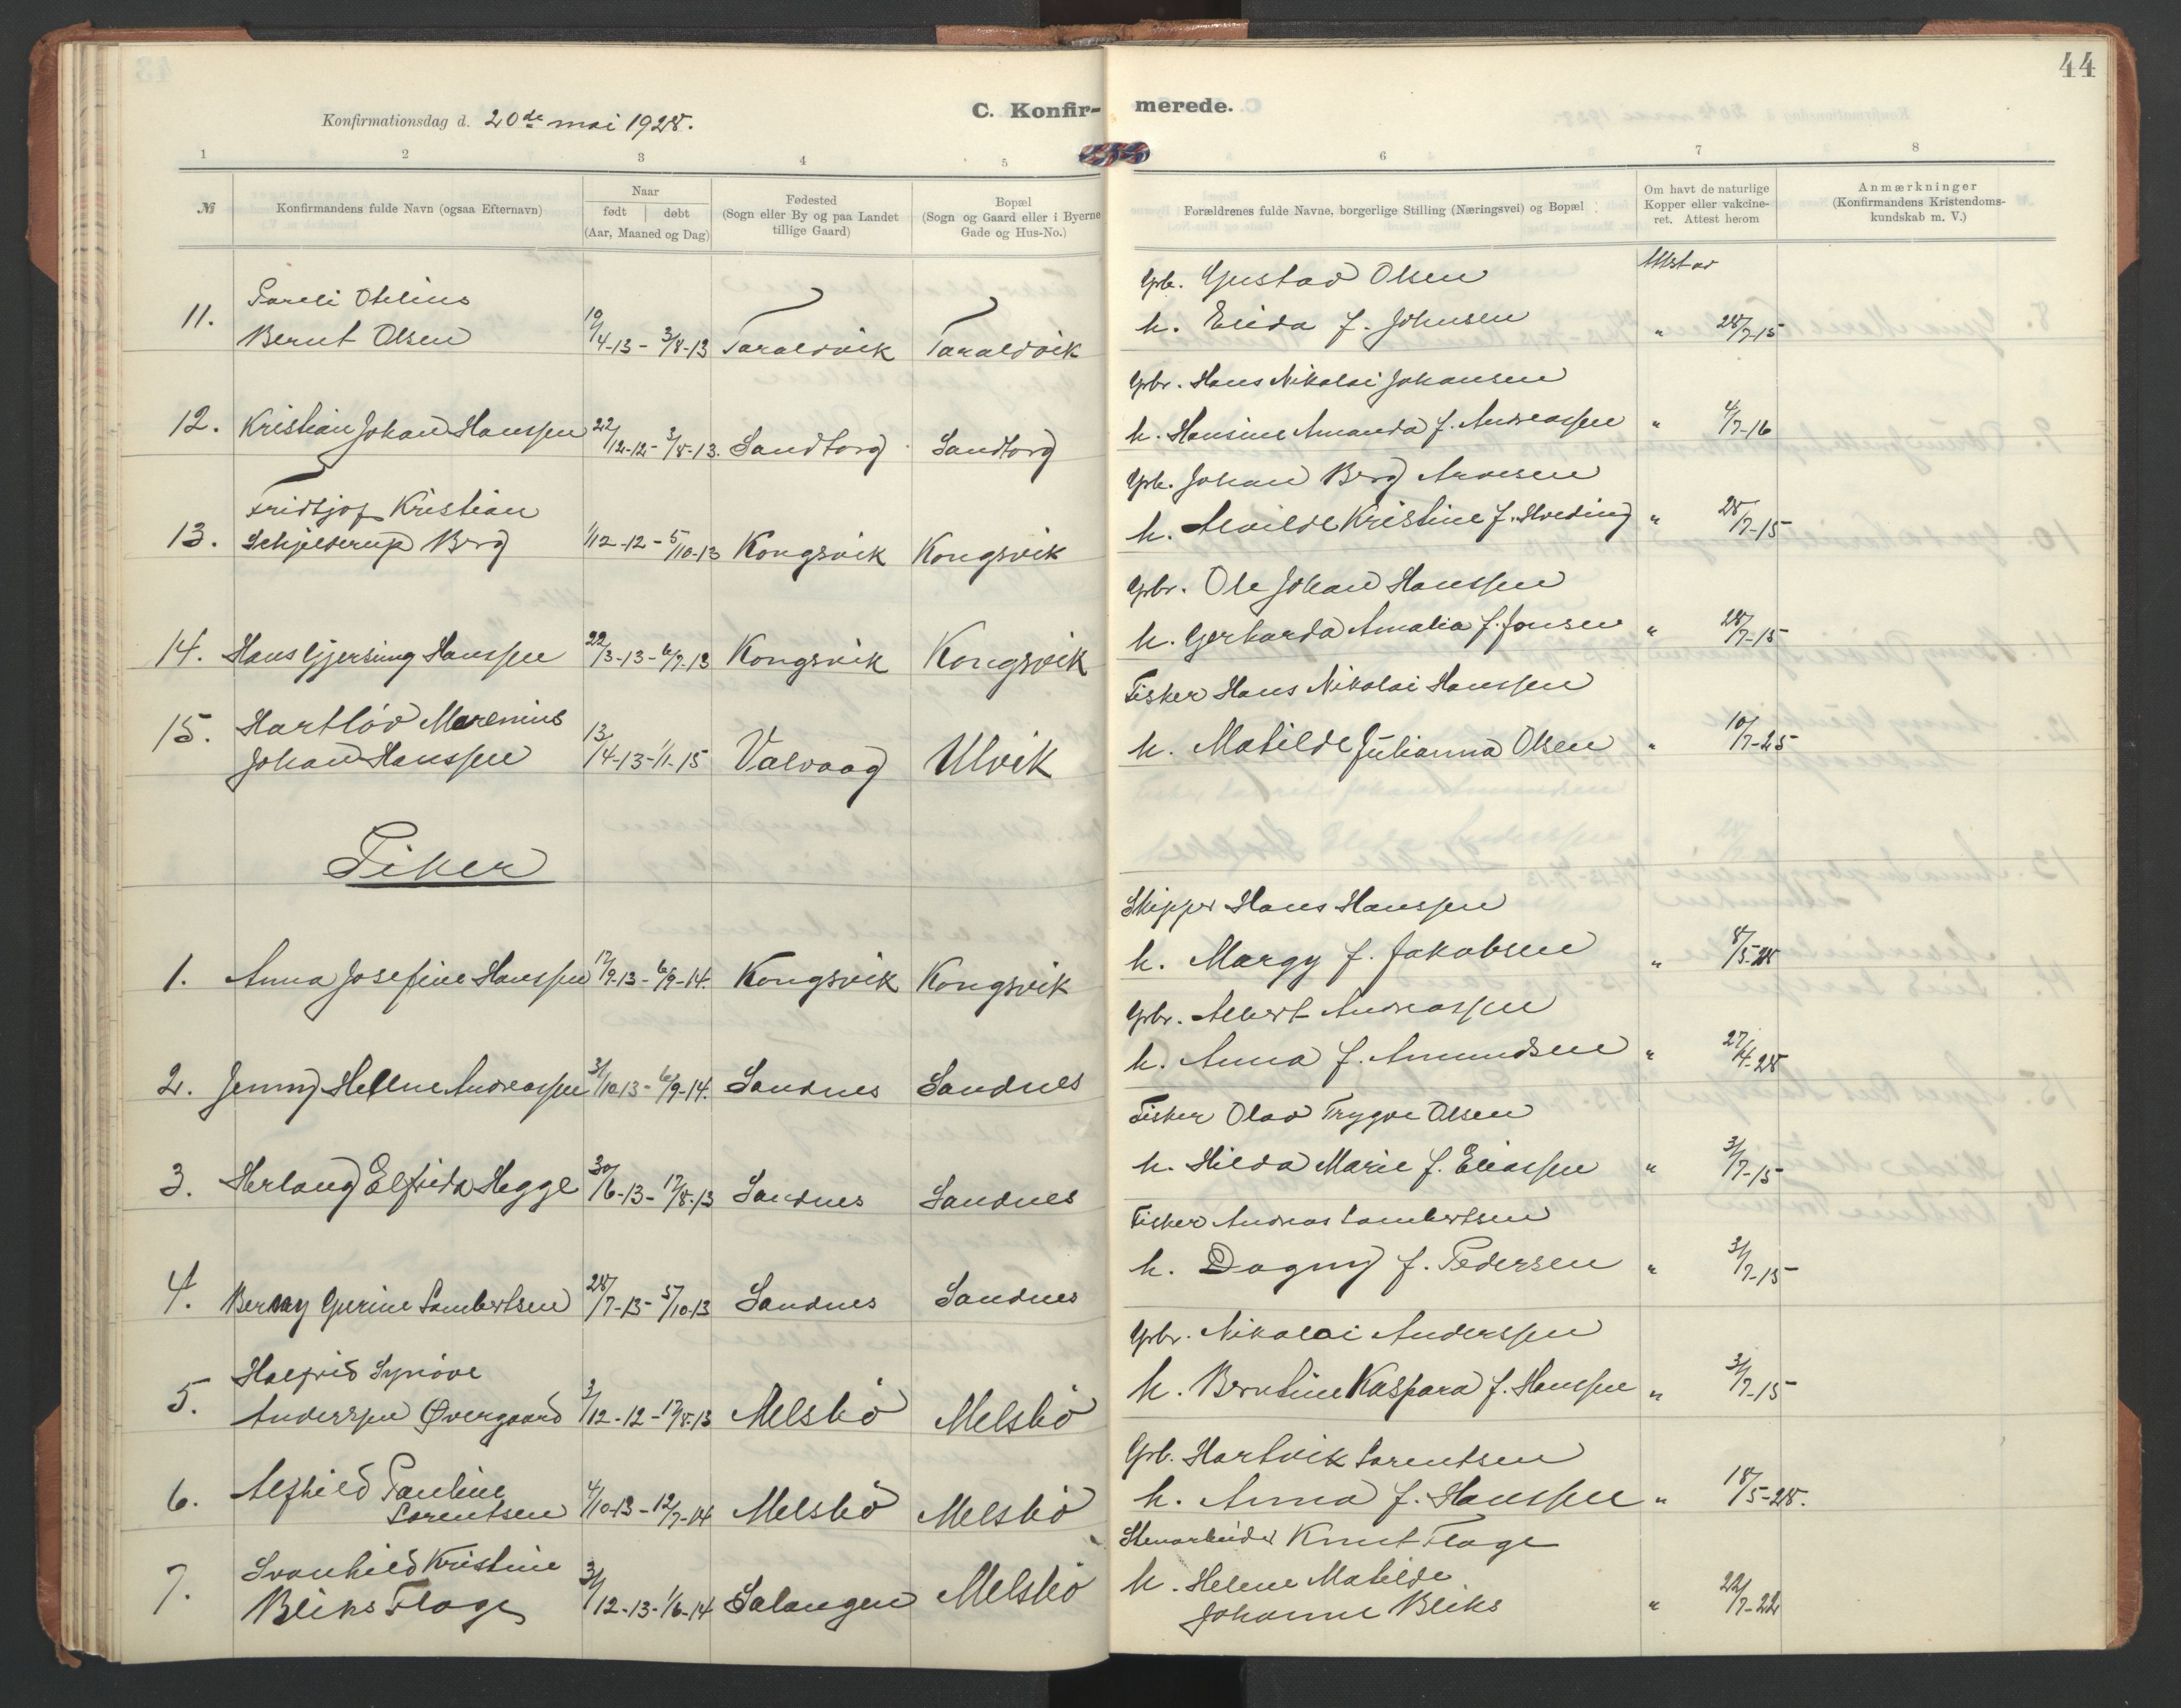 44
Konfirmationsdag d. 20de mai 1928.
C. Konfir- merede.
1 2 3 4 5 6 7 8
№
Konfirmandens fulde Navn (ogsaa Efternavn)
Naar
født døbt
(Aar, Maaned og Dag)
Fødested
(Sogn eller By og paa Landet
tillige Gaard)
Bopæl
(Sogn og Gaard eller i Byerne
Gade og Hus-No.)
Forældrenes fulde Navne, borgerlige Stilling (Næringsvei) og Bopæl
Om havt de naturlige
Kopper eller vakcine-
ret. Attest herom
Anmærkninger
(Konfirmandens Kristendoms-
kundskab m. V.)
Gbr. Gustav Olsen
11. Sareli Othlius
Bernt Olsen 19/4-13 - 3/8-13 Taraldvik Taraldvik h. Elida f. Johnsen " 28/7-15
Gbr. Hans Nikolai Johansen
12. Kristian Johan Hanssen 22/12-12 - 3/8-13. Sandtorg Sandtorg h. Hansine Amanda f. Andreassen " 4/7-16
Gbr. Johan Berg Arnesen
13. Fridtjof Kristian
Schjelderup Berg 1/12-12 - 5/10-13 Kongsvik Kongsvik h. Alvilde Kristine f. Hveding " 28/7-15
Gbr. Ole Johan Hanssen
14. Hans Gjersing Hanssen 22/3-13 - 6/7-13 Kongsvik Kongsvik h. Gerharda Amalia f. Jonsen " 28/7-15
Fisker Hans Nikolai Hanssen
15. Hartløv Marenius
Johan Hanssen 13/4-13 - 1/1-15 Valvaag Ulvik h. Matilde Julianna Olsen " 10/7-25
Piker
Skipper Hans Hanssen
1. Anna Josefine Hanssen 17/9-13 - 6/9-14. Kongsvik Kongsvik h. Margy f. Jakobsen " 8/5-28
Gbr. Albert Andreassen
2. Jenny Hellne Andreassen 31/10-13 - 6/9-14. Sandnes Sandnes h. Anna f. Amundsen " 27/4-28
Fisker Olav Trygve Olsen
3. Herlaug Elfrida Hegge 30/6-13 - 17/8-13 Sandnes Sandnes h. Hilda Marie f. Eliassen " 3/7-15
Fisker Andreas Lambertsen
4. Bernny Gurine Lambertsen 28/7-13 - 5/10-13 Sandnes Sandnes h. Dagny f. Pedersen " 3/7-15
Gbr. Nikolai Anderssen
5. Halfrid Synøve
Anderssen Øvergaard 3/12-12 - 17/8-13 Melsbö Melsbö h. Berntine Kaspara f. Hanssen " 3/7-15
Gbr. Hartvik Lorentsen
6. Alfhild Pauline
Lorentsen 4/10-13 - 12/7-14 Melsbö Melsbö h. Anna f. Hanssen " 18/5-28.
Stenarbeider Knut Flage
7. Svanhild Kristine
Bliks Flage 31/12-13 - 1/6-14 Salangen Melsbö h. Helene Matilde
Johanne Bliks " 22/7-22